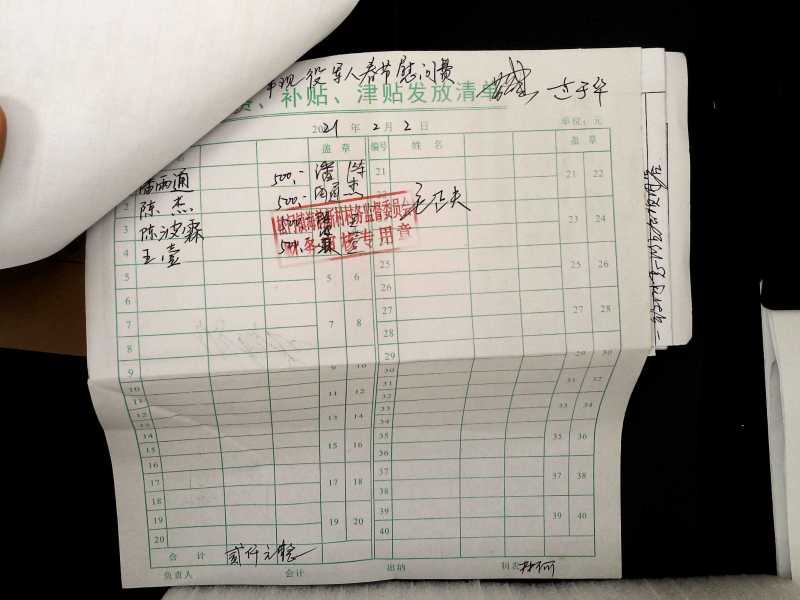 现役军人春节慰问费
、补贴、津贴发放清单
2021年2月2日
单位：元
盖章 编号 姓名 盖章
潘雨通 500,- 21 21 22
2 陈杰 500,-
3 陈波霖 23 23 24
4 王壹 500,-
村务监督委员会
专用章
5 5 6 25 25 26
6 26
7 7 8 27 27 28
8 28
9 9 10 29 29 30
10 30
11 11 12 31 31 32
12 32
13 13 14 33 33 34
14 34
15 15 16 35 35 36
16 36
17 17 18 37 37 38
18 38
19 19 20 39 39 40
20 40
合计 贰仟元整
负责人 会计 出纳 制表